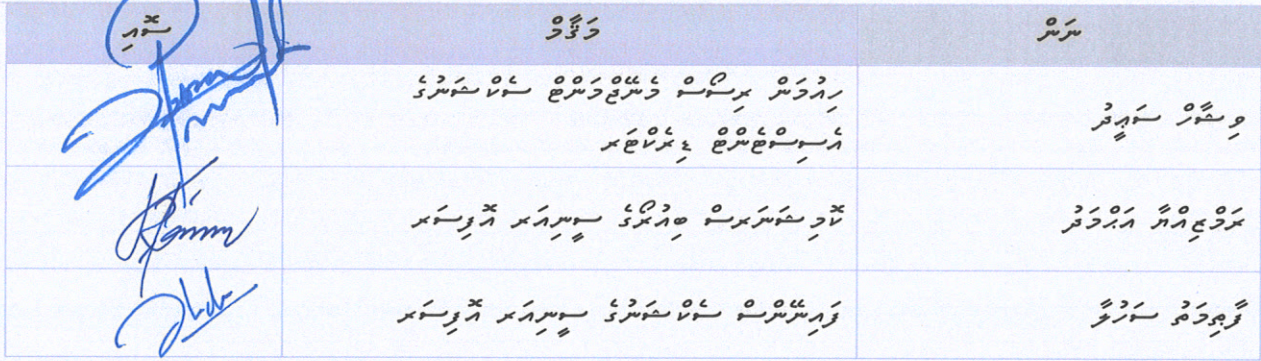 ނަން	މަޤާމް	ސޮއި
ވިޝާހް ސަޢީދު	ހިއުމަން ރިސޯސް މެނޭޖްމަންޓް ސެކްޝަނުގެ
އެސިސްޓެންޓް ޑިރެކްޓަރ
ރަމްޒިއްޔާ އަޙްމަދު	ކޮމިޝަނަރސް ބިއުރޯގެ ސީނިއަރ އޮފިސަރ
ފާޠިމަތު ސަހުލާ	ފައިނޭންސް ސެކްޝަނުގެ ސީނިއަރ އޮފިސަރ